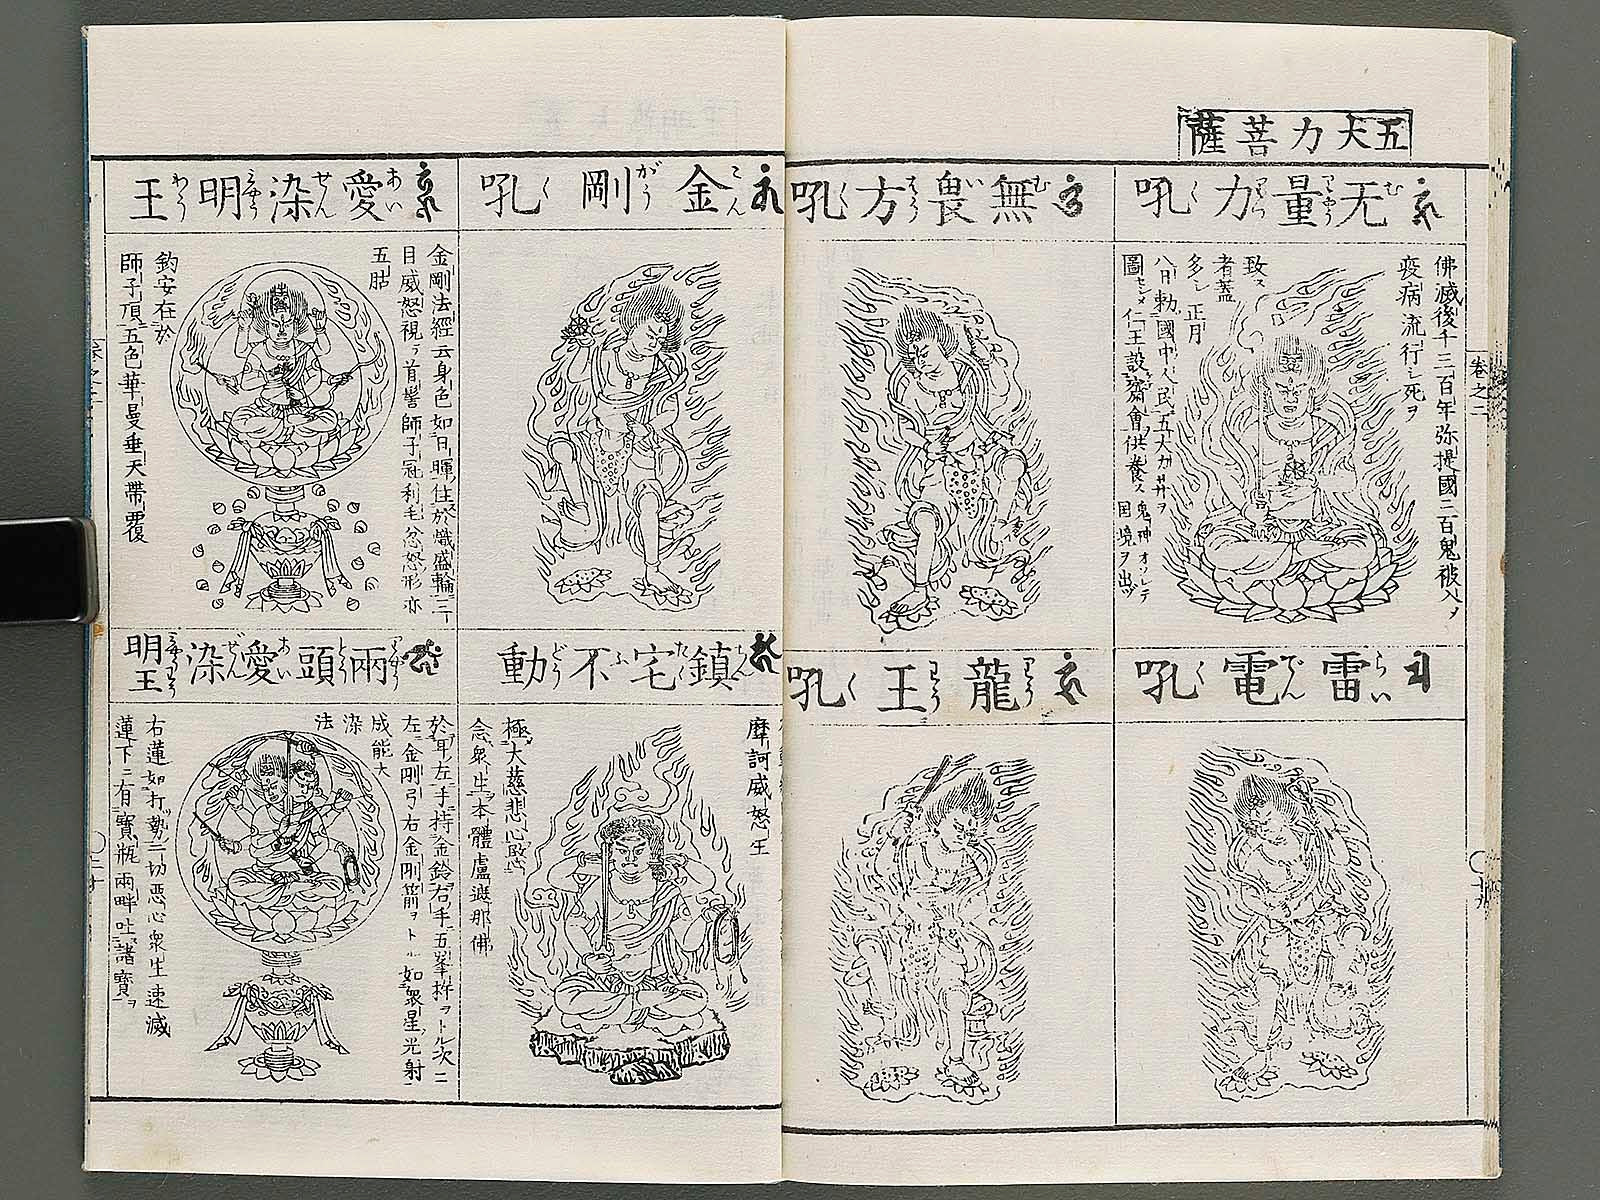 五大力菩薩
无量力吼
むりやうりきく
佛滅後千三百年弥提國二百鬼被入ヲ
疫病流行シ死ヲ
致ス
者蓋
多シ正月
八日勅國中人民五大力
圖セシメ仁王設齋會供養ス
鬼神オソレテ
国境ヲ出ヅ
雷電吼
らいでんく
無畏方吼
龍王吼
金剛吼
こんがうく
鎮宅不動
ちんたくふどう
摩訶威怒王
極大慈悲心愍
念衆生本體盧遮那佛
愛染明王
あいぜんみやうわう
金剛法經云身色如日暉住於熾盛輪三
目威怒視ヲ首髻師子冠利毛忿怒形亦
五鈷
鈎安在於
師子頂五色華曼垂天帶覆
兩頭愛染明王
於耳左手持金鈴右手五峯杵ヲトル次ニ
左金剛弓右金剛箭ヲトル如衆星光射
成能大
染
法
右蓮如打勢一切惡心衆生速滅
蓮下ニ有寶瓶兩畔吐諸寶ヲ
卷之二